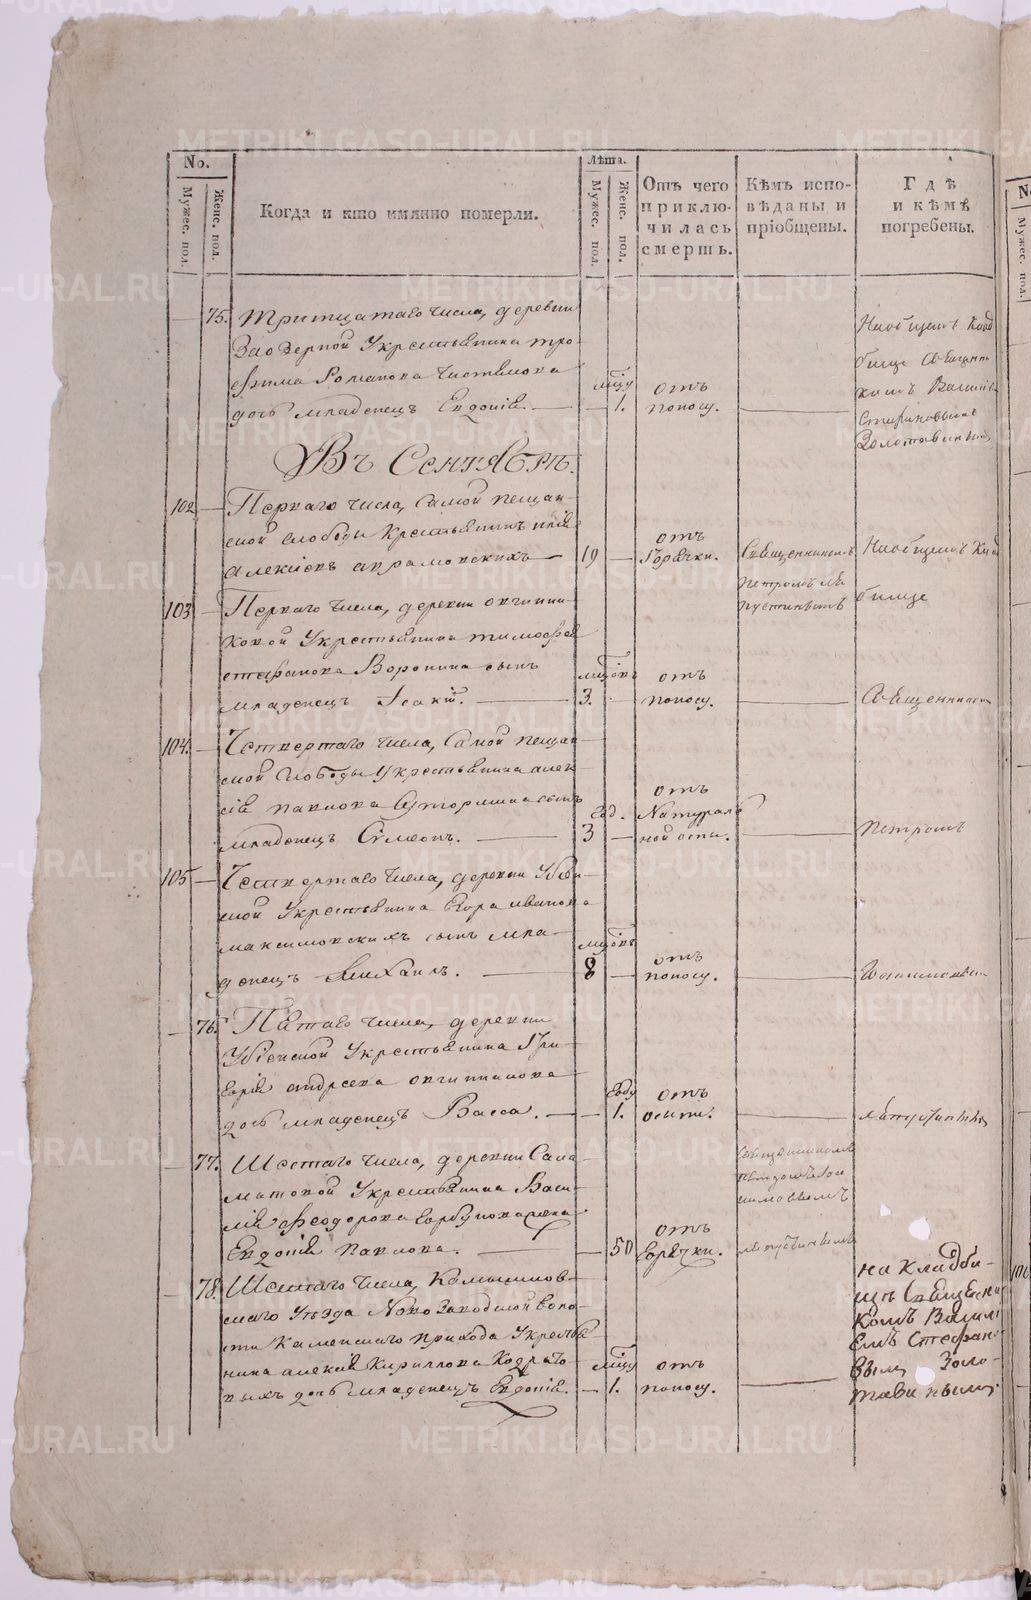 No.
Мужес. пол.
Женс. пол.
Когда и кто имянно померли.
Лѣта.
Мужес. пол.
Женс. пол.
Отъ чего приклю-
чилась
смерть.
Кѣмъ испо-
вѣданы и
пріобщены.
Гдѣ
и кѣмъ
погребены.
75. Тритцатаго числа, деревни
Заозерной Укрестьянина тро-
фима Романова
дочь младенецъ Евдокія. — мцу 1. отъ поносу. —
Наобщемъ Клад
бище Священни
комъ Васил
Стефановымъ
Золотавинымъ
Въ Сентябрѣ.
102 — Перваго числа, Самой пещан-
ской слободы Крестьянинъ
алексіевъ аврамовскихъ — 19 — отъ Горячки. Священникомъ
Петромъ Ла
пустинымъ
Наобщемъ Клад
бище
103 — Перваго числа, деревни
ковой Укрестьянина тимофея
стефанова Воронина сынъ
младенецъ Іоакім. — мцовъ 3. отъ поносу. — Священником
104. — Четвертаго числа, Самой пещан
ской Слободы Укрестьянина алек
сія павлова сынъ
младенецъ Сѵмеонъ. — год. 3 — отъ Натураль
ной оспы. — петромъ
105 — Четвертаго числа, деревни Убіен
ской Укрестьянина Егора иванова
максимовскихъ сынъ мла-
денецъ Михаилъ. — мцовъ 8 — отъ поносу. —
— 76. Пятаго числа, деревни
Убіенской Укрестьянина Гри-
горія андреева
дочь младенецъ Васса. — году 1. отъ оспы. —
— 77. Шестаго числа, деревни Сала
матовой Укрестьянина Васи-
лія Феодорова Горбунова жена
Евдокія павлова. — 50 отъ Горячки.
Священникомъ
лапустинымъ
— 78. Шестаго числа, Камышлов-
скаго Уезда Новозаводской воло-
сти Каменскаго прихода Укрестья
нина алексія Кириллова Кодрато
выхъ дочь младенецъ Евдокія. — мцу 1. отъ поносу. —
на Кладби-
щѣ Священни
комъ Васил
емъ Стефано
вым Золо-
тавинымъ